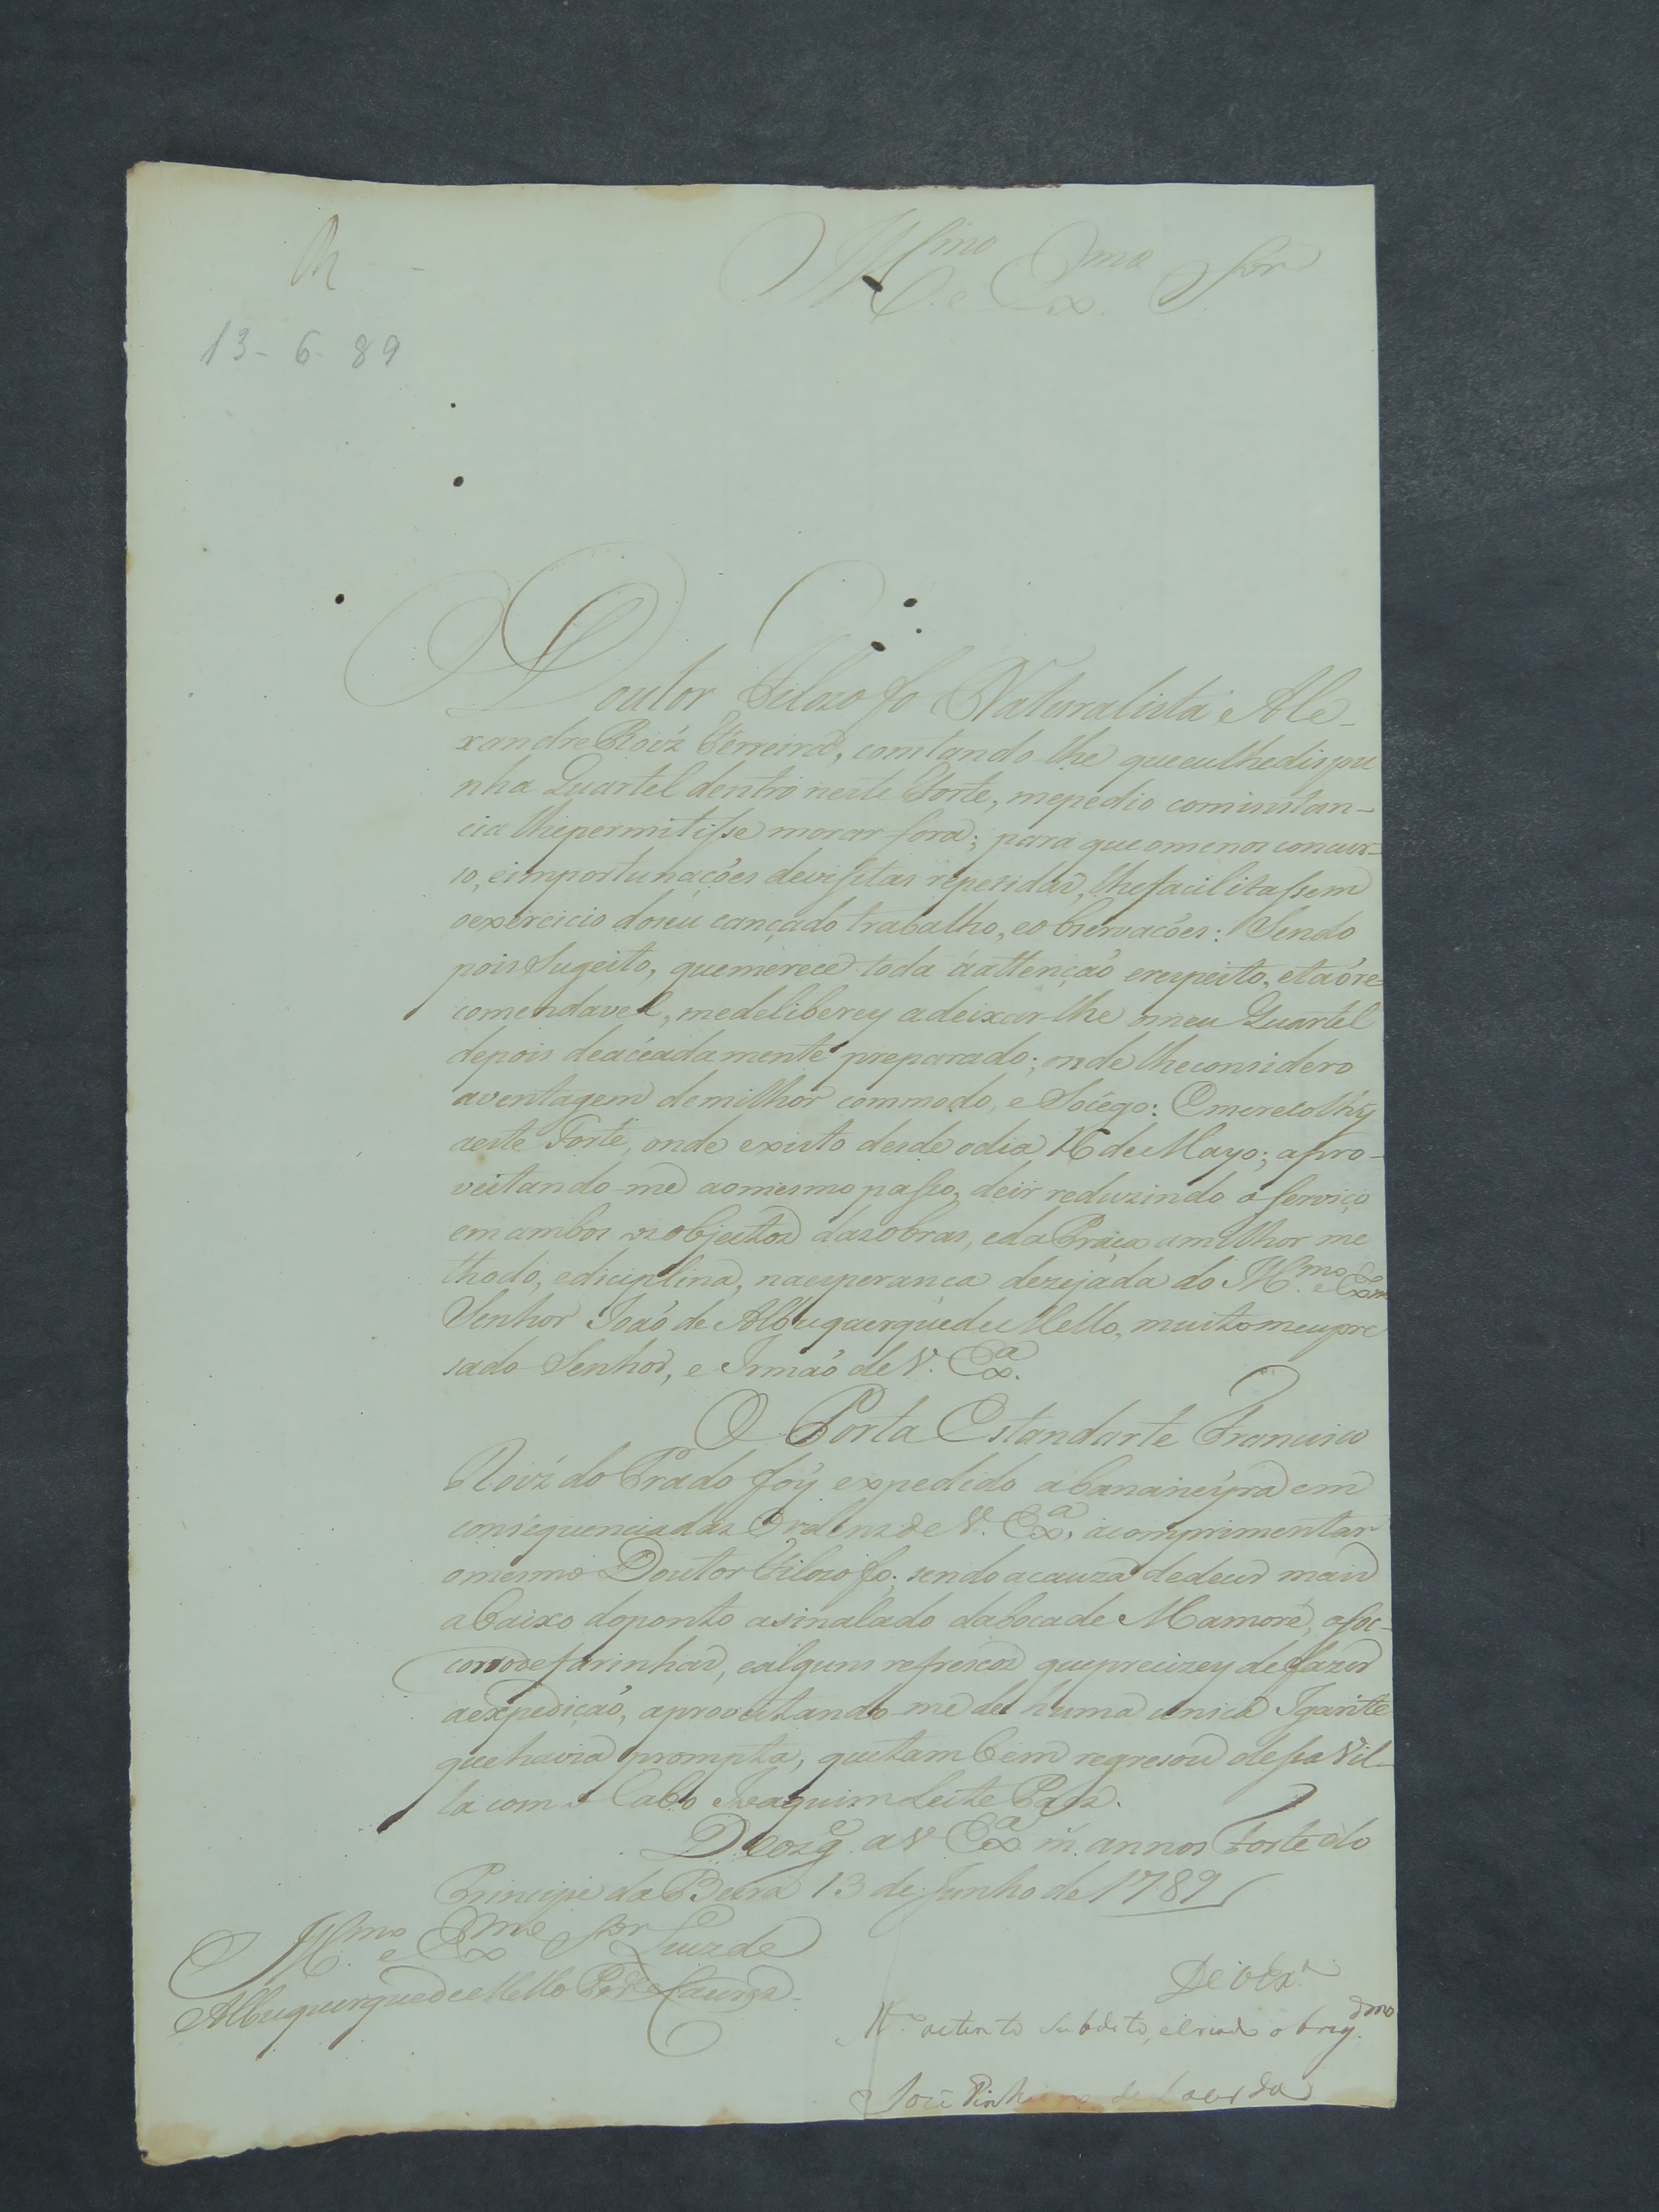 Illmo. e Exmo. Snor
13-6-89
Doutor Filozofo Naturalista Ale-
xandre Roiz Ferreira, constando-lhe que eu lhe dispu
nha Quartel dentro neste Forte, me pedio com instan-
cia lhe permitisse morar fora; para que o menos concur-
so, e importunações de visitas repetidas, lhe facilitassem
o exercicio do seu cançado trabalho, e observações: Sendo
pois Sugeito, que merece toda a attenção e respeito, e tão re
comendavel, me deliberey a deixar-lhe o meu Quartel
depois de aceadamente preparado; onde lhe considero
a ventagem de milhor commodo, e Socego: E me recolhy
neste Forte, onde existo desde o dia 16 de Mayo; apro-
veitando-me ao mesmo passo, de ir reduzindo o serviço
em ambos os objectos das obras, e da Praça a milhor me
thodo, e diciplina, na esperança dezejada do Illmo. e Exmo
Senhor João de Albuquerque de Mello, muito meu pre
sado Senhor, e Irmão de V. Exa.
O Porta Estandarte Francisco
Roiz do Prado foy expedido a Bananeyra em
consequencia das Ordens de V. Exa. a comprimentar
o mesmo Doutor Filozofo; sendo a cauza de deixar mais
abaixo do ponto asinalado da boca de Mamoré, o soc-
corro de farinhas, e alguns refrescos que precizey de fazer
a expedição, aproveitando-me de huma unica Igarite
que havia prompta, que tambem regresou dessa Vil-
la com o Cabo Joaquim Leite Paes.
Deos g.e a V Exa m. annos Forte do
Principe da Beira 13 de Junho de 1789
Illmo e Exmo Snor Luiz de
Albuquerque de Mello Pera e Caceres
De V Exa
Mo. atento subdito, e criado obrigdmo
José Pinheiro de Lacerda